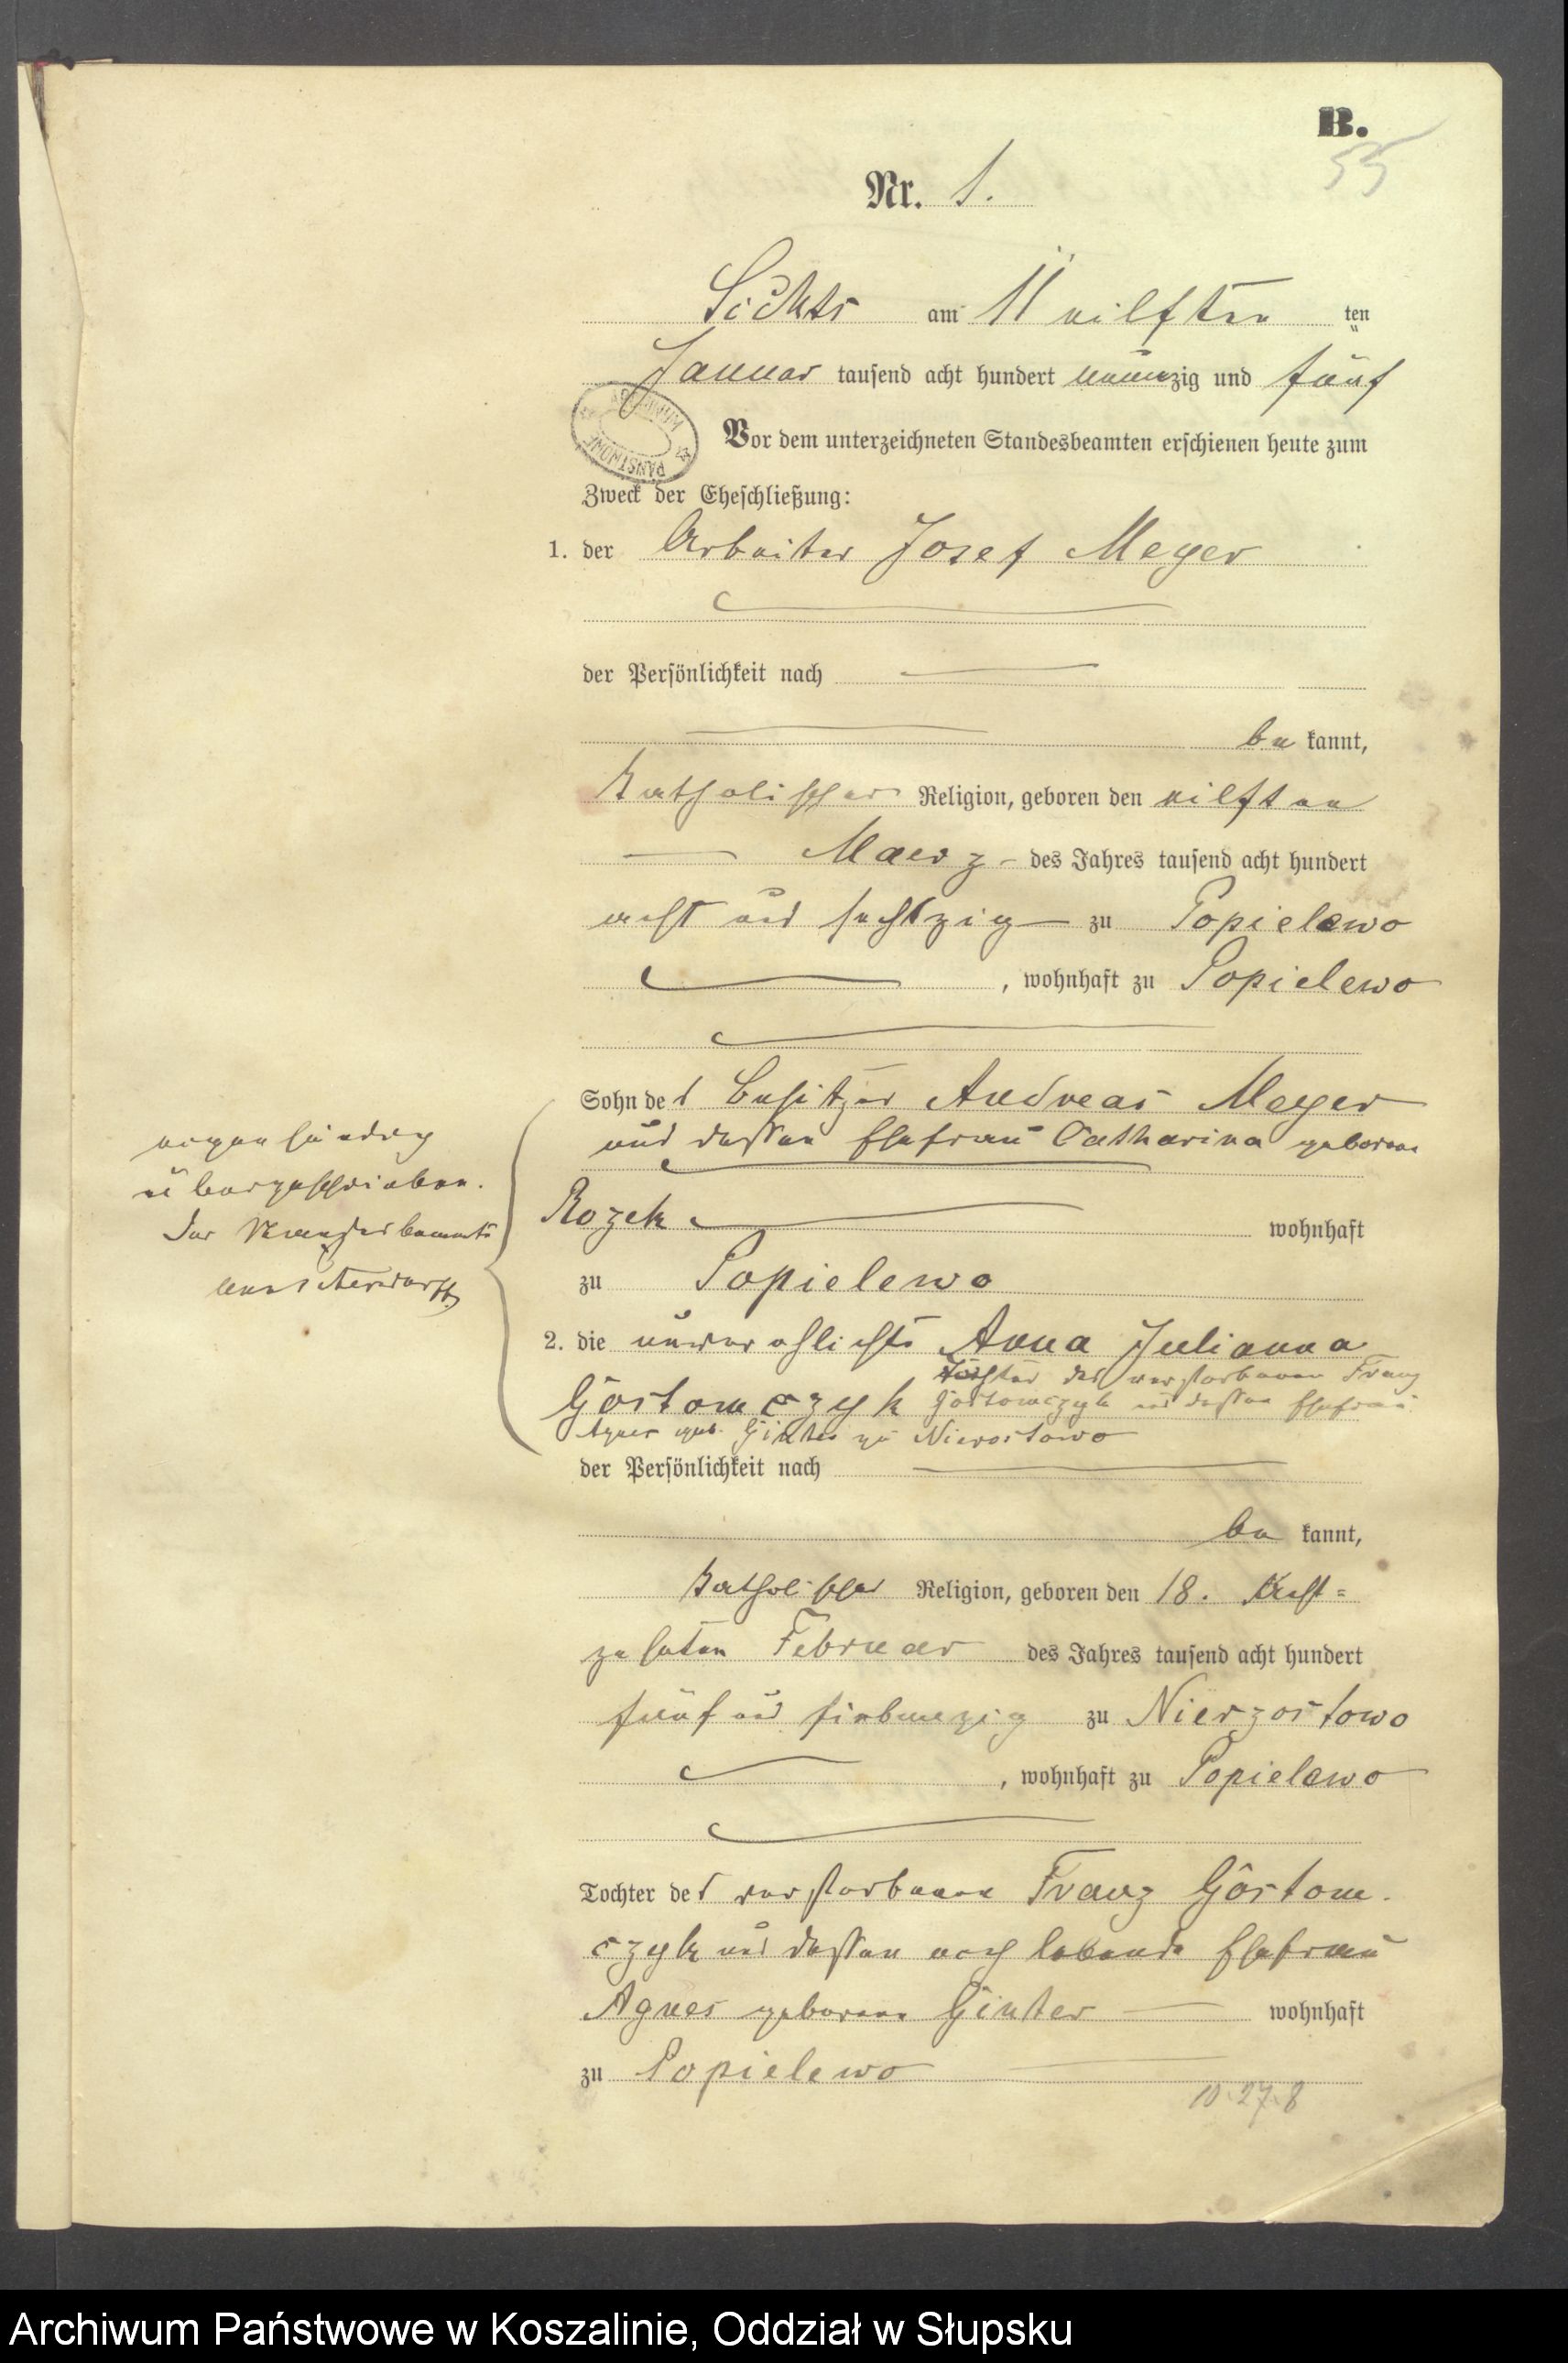 B.
55
Nr. 1.
Sichts am 11 eilften ten
Januar tausend acht hundert neunzig und fünf
Vor dem unterzeichneten Standesbeamten erschienen heute zum
Zweck der Eheschließung:
1. der Arbeiter Josef Meyer
der Persönlichkeit nach
be kannt,
katholischer Religion, geboren den eilften
Maerz des Jahres tausend acht hundert
acht und sechszig zu Popielewo
, wohnhaft zu Popielewo
Sohn des Besitzer Andreas Meyer
und dessen Ehefrau Catharina geborene
Rozek wohnhaft
zu Popielewo
übergeschrieben.
Der Standesbeamte
2. die unverehlichte Anna Julianna
Gostomczyk Tochter des verstorbenen Franz
Gostomczyk und dessen Ehefrau
Agnes geb. Ginter zu Nierostowo
der Persönlichkeit nach
be kannt,
katholischer Religion, geboren den 18. Acht=
zehnten Februar des Jahres tausend acht hundert
fünf und siebenzig zu Nierzostowo
, wohnhaft zu Popielewo
Tochter des verstorbenen Franz Gostom
czyk und dessen noch lebende Ehefrau
Agnes geborene Ginter wohnhaft
zu Popielewo
10.27.8
Archiwum Państwowe w Koszalinie, Oddział w Słupsku